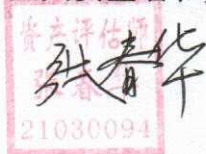 资产评估师
张春华
21030094